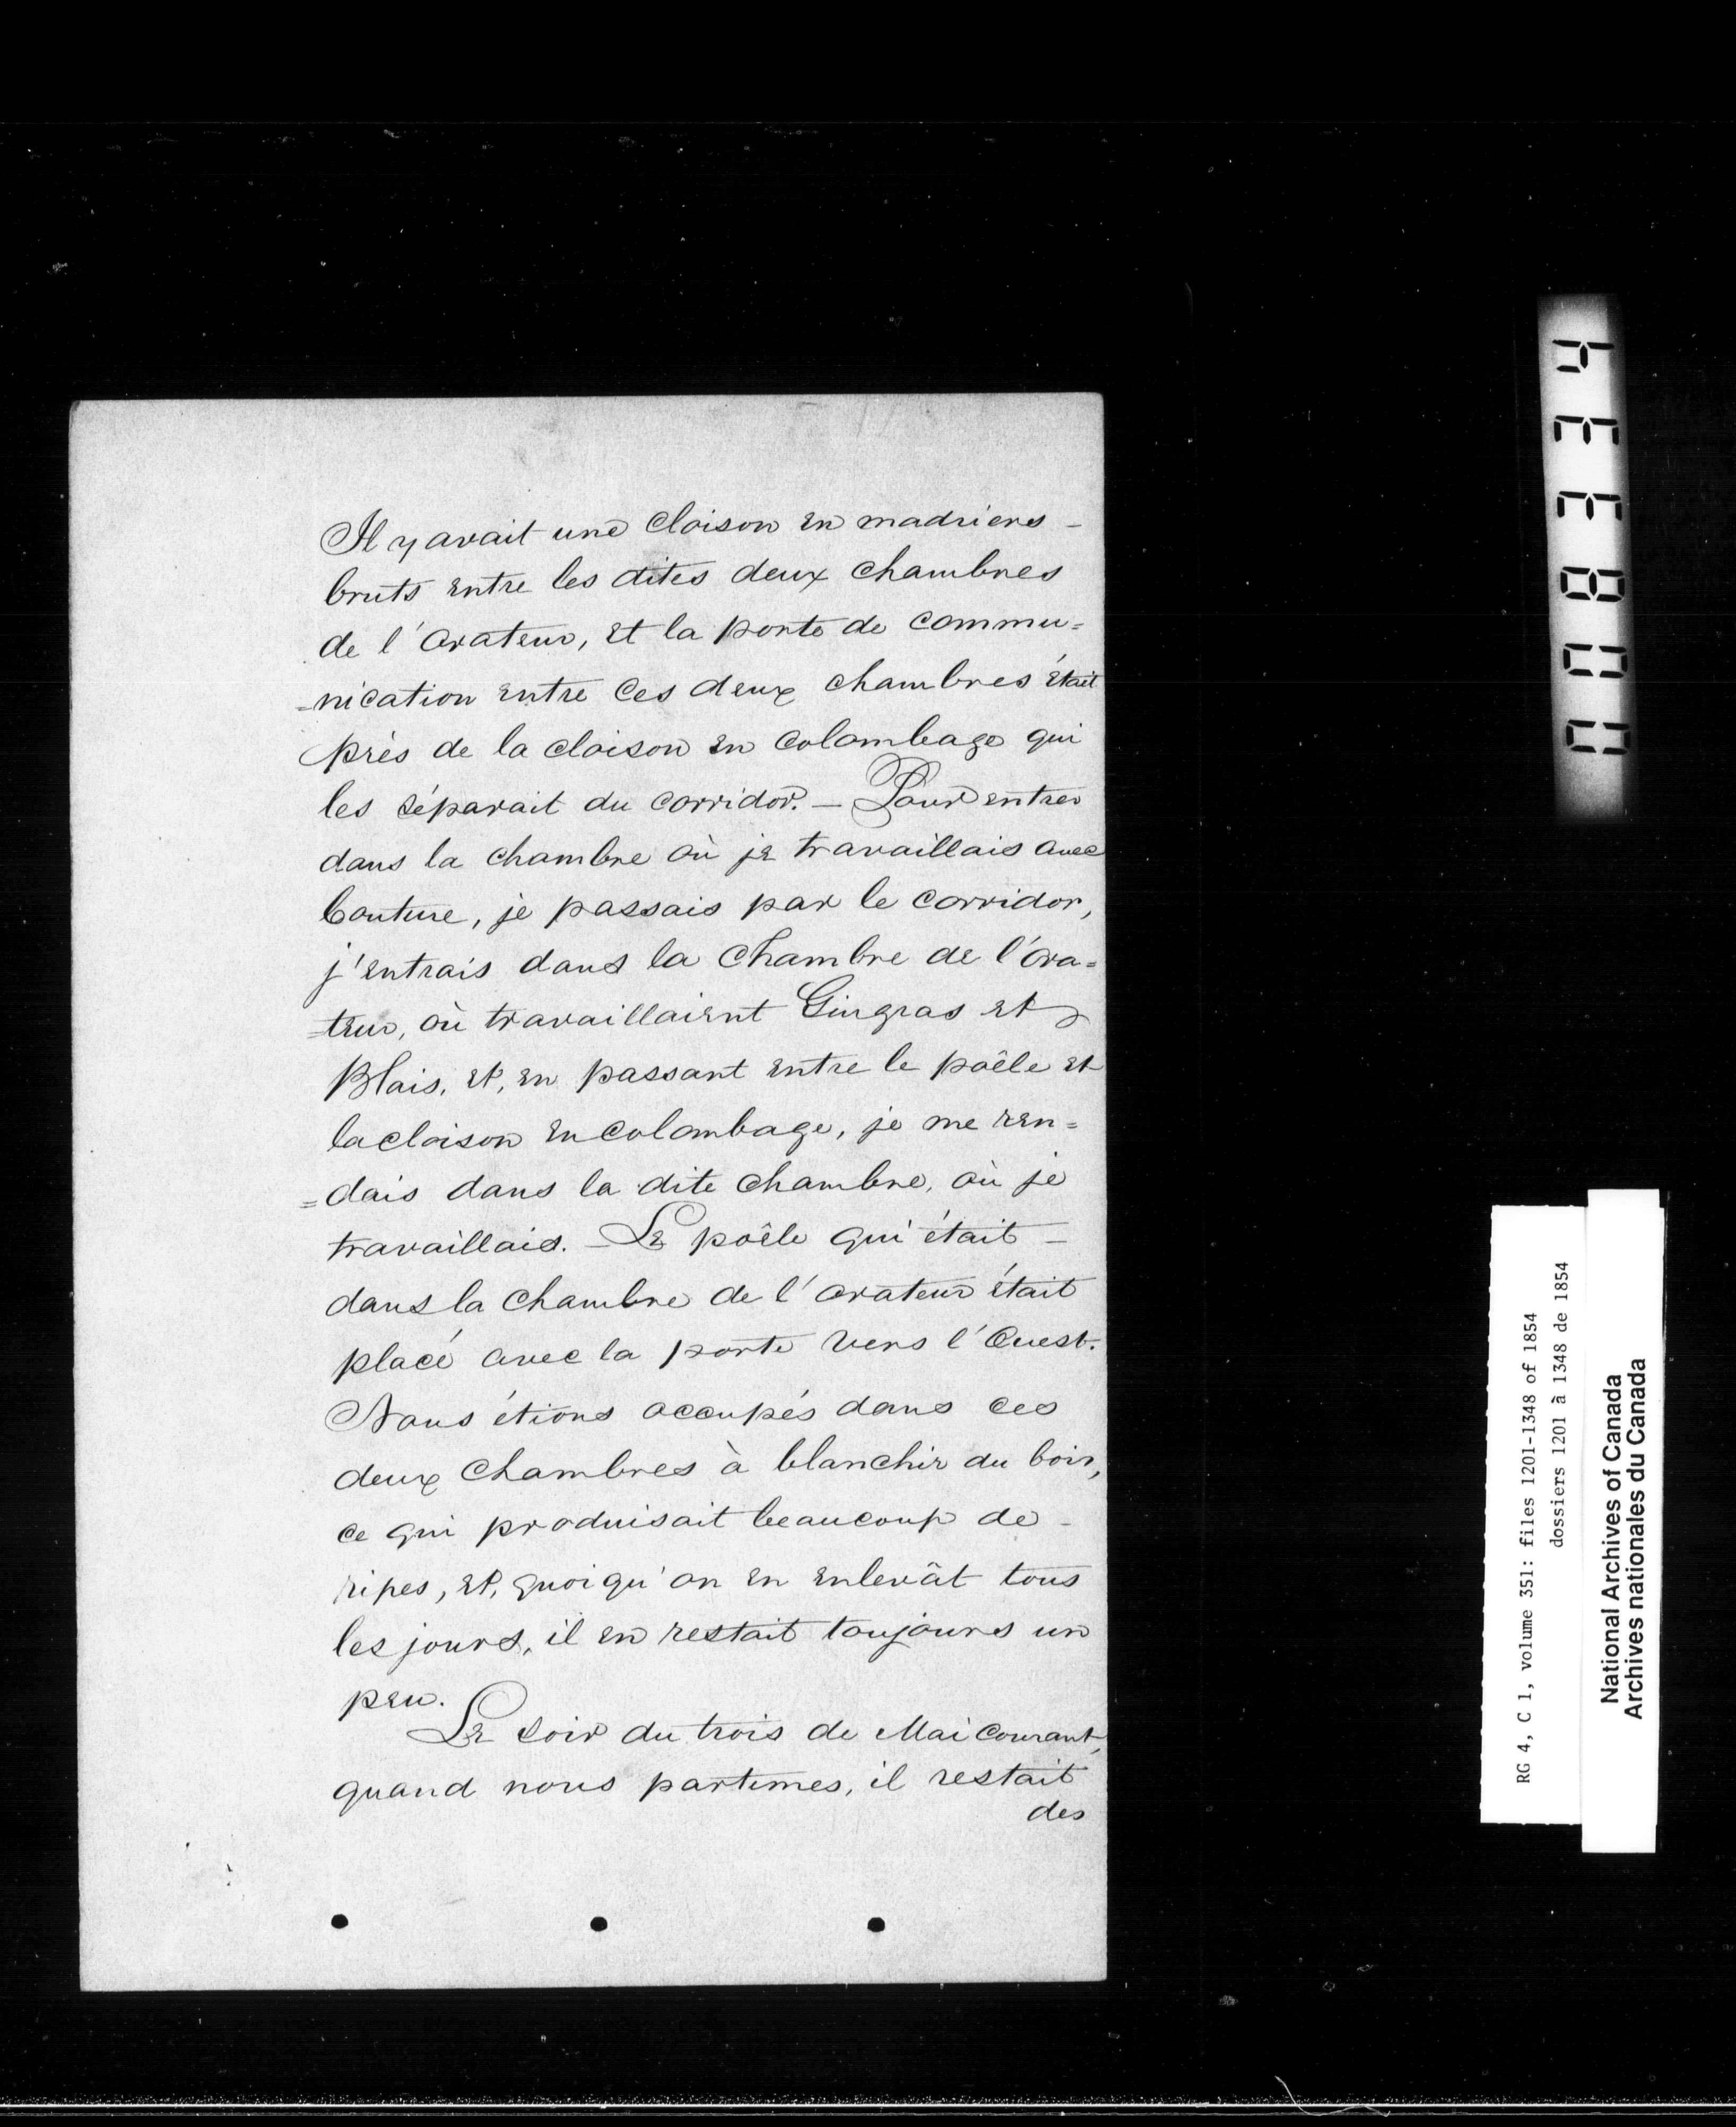 Il y avait une cloison en madriers -
bruts entre les dites deux chambres
de l'orateur, et la porte de commu=
=nication entre ces deux chambres était
près de la cloison en colombage qui
les séparait du corridor. — Pour entrer
dans la chambre où je travaillais avec
Couture, je passais par le corridor,
j'entrais dans la chambre de l'ora=
=teur, où travaillaient Gingras et
Blais, et, en passant entre le poêle et
la cloison en colombage, je me ren=
=dais dans la dite chambre, où je
travaillais. — Le poêle qui était —
dans la chambre de l'orateur était
placé avec la porte vers l'Ouest.
Nous étions occupés dans ces
deux chambres à blanchir du bois,
ce qui produisait beaucoup de -
ripes, et, quoiqu'on en enlevât tous
les jours, il en restait toujours un
peu.
Le soir du trois de Mai courant,
quand nous partimes, il restait
des
RG 4, C 1, volume 351: files 1201-1348 of 1854
dossiers 1201 à 1348 de 1854
National Archives of Canada
Archives nationales du Canada